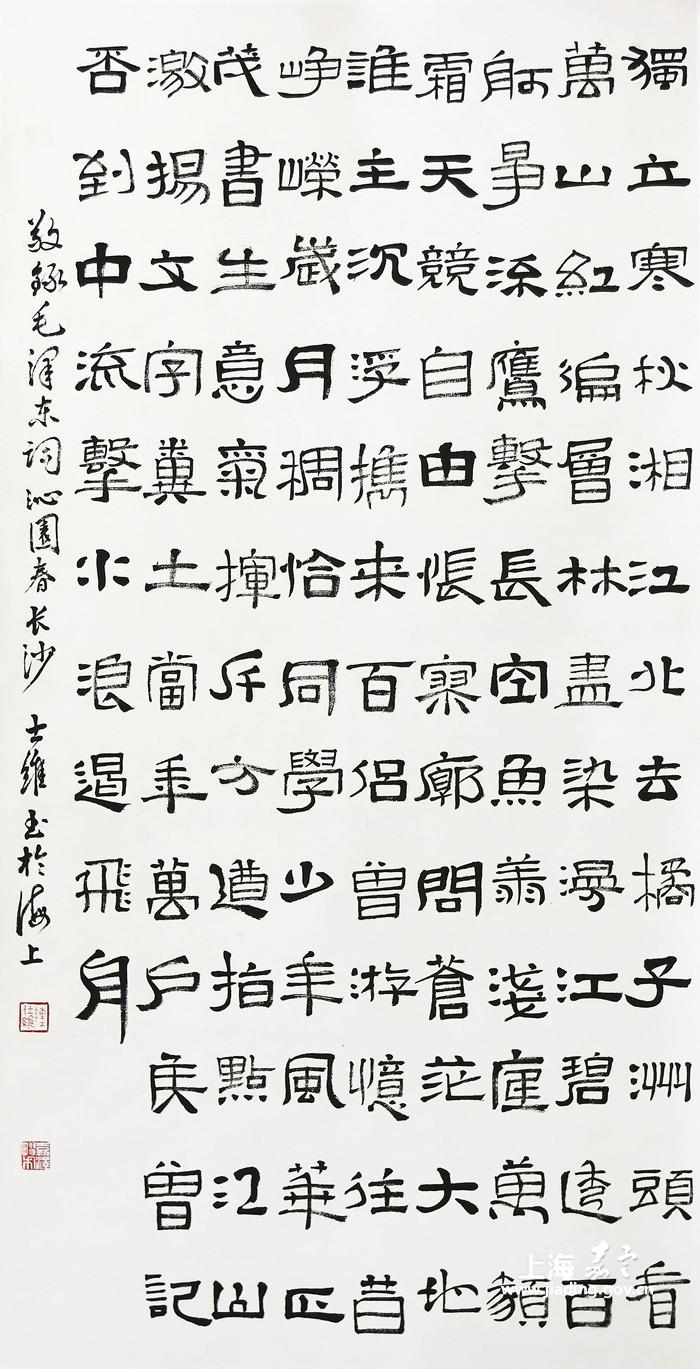 獨立寒秋湘江北去橘子洲頭看
萬山紅徧層林盡染漫江碧透百
舸爭流鷹擊長空魚翔淺底萬類
霜天競自由悵寥廓問蒼茫大地
誰主沉浮攜來百侶曾游憶往昔
崢嶸歲月稠恰同學少年風華正
茂書生意氣揮斥方遒指點江山
激揚文字糞土當年萬戶侯曾記
否到中流擊水浪遏飛舟
敬錄毛澤东詞沁園春长沙 士維书於海上
上海嘉定
www.jiading.gov.cn